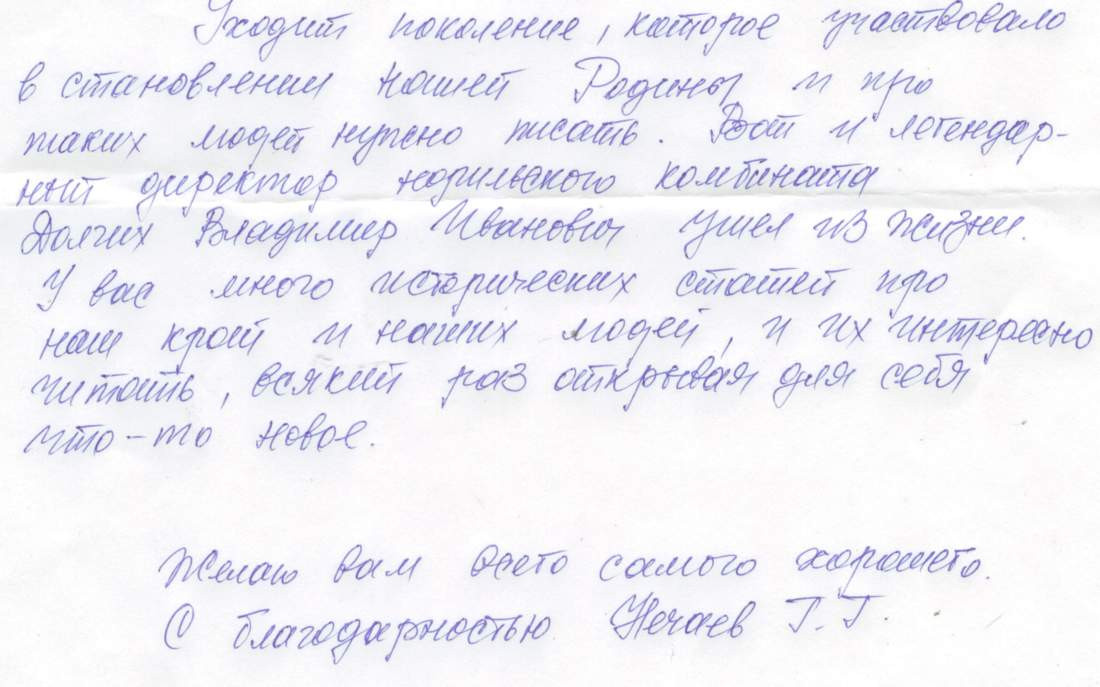 Уходит поколение, которое участвовало
в становлении нашей Родины и про
таких людей нужно писать. Вот и легендар-
ный директор норильского комбината
Долгих Владимир Иванович ушел из жизни.
У вас много исторических статей про
наш край и наших людей, и их интересно
читать, всякий раз открывая для себя
что-то новое.
Желаю вам всего самого хорошего.
С благодарностью Нечаев Г.Г.